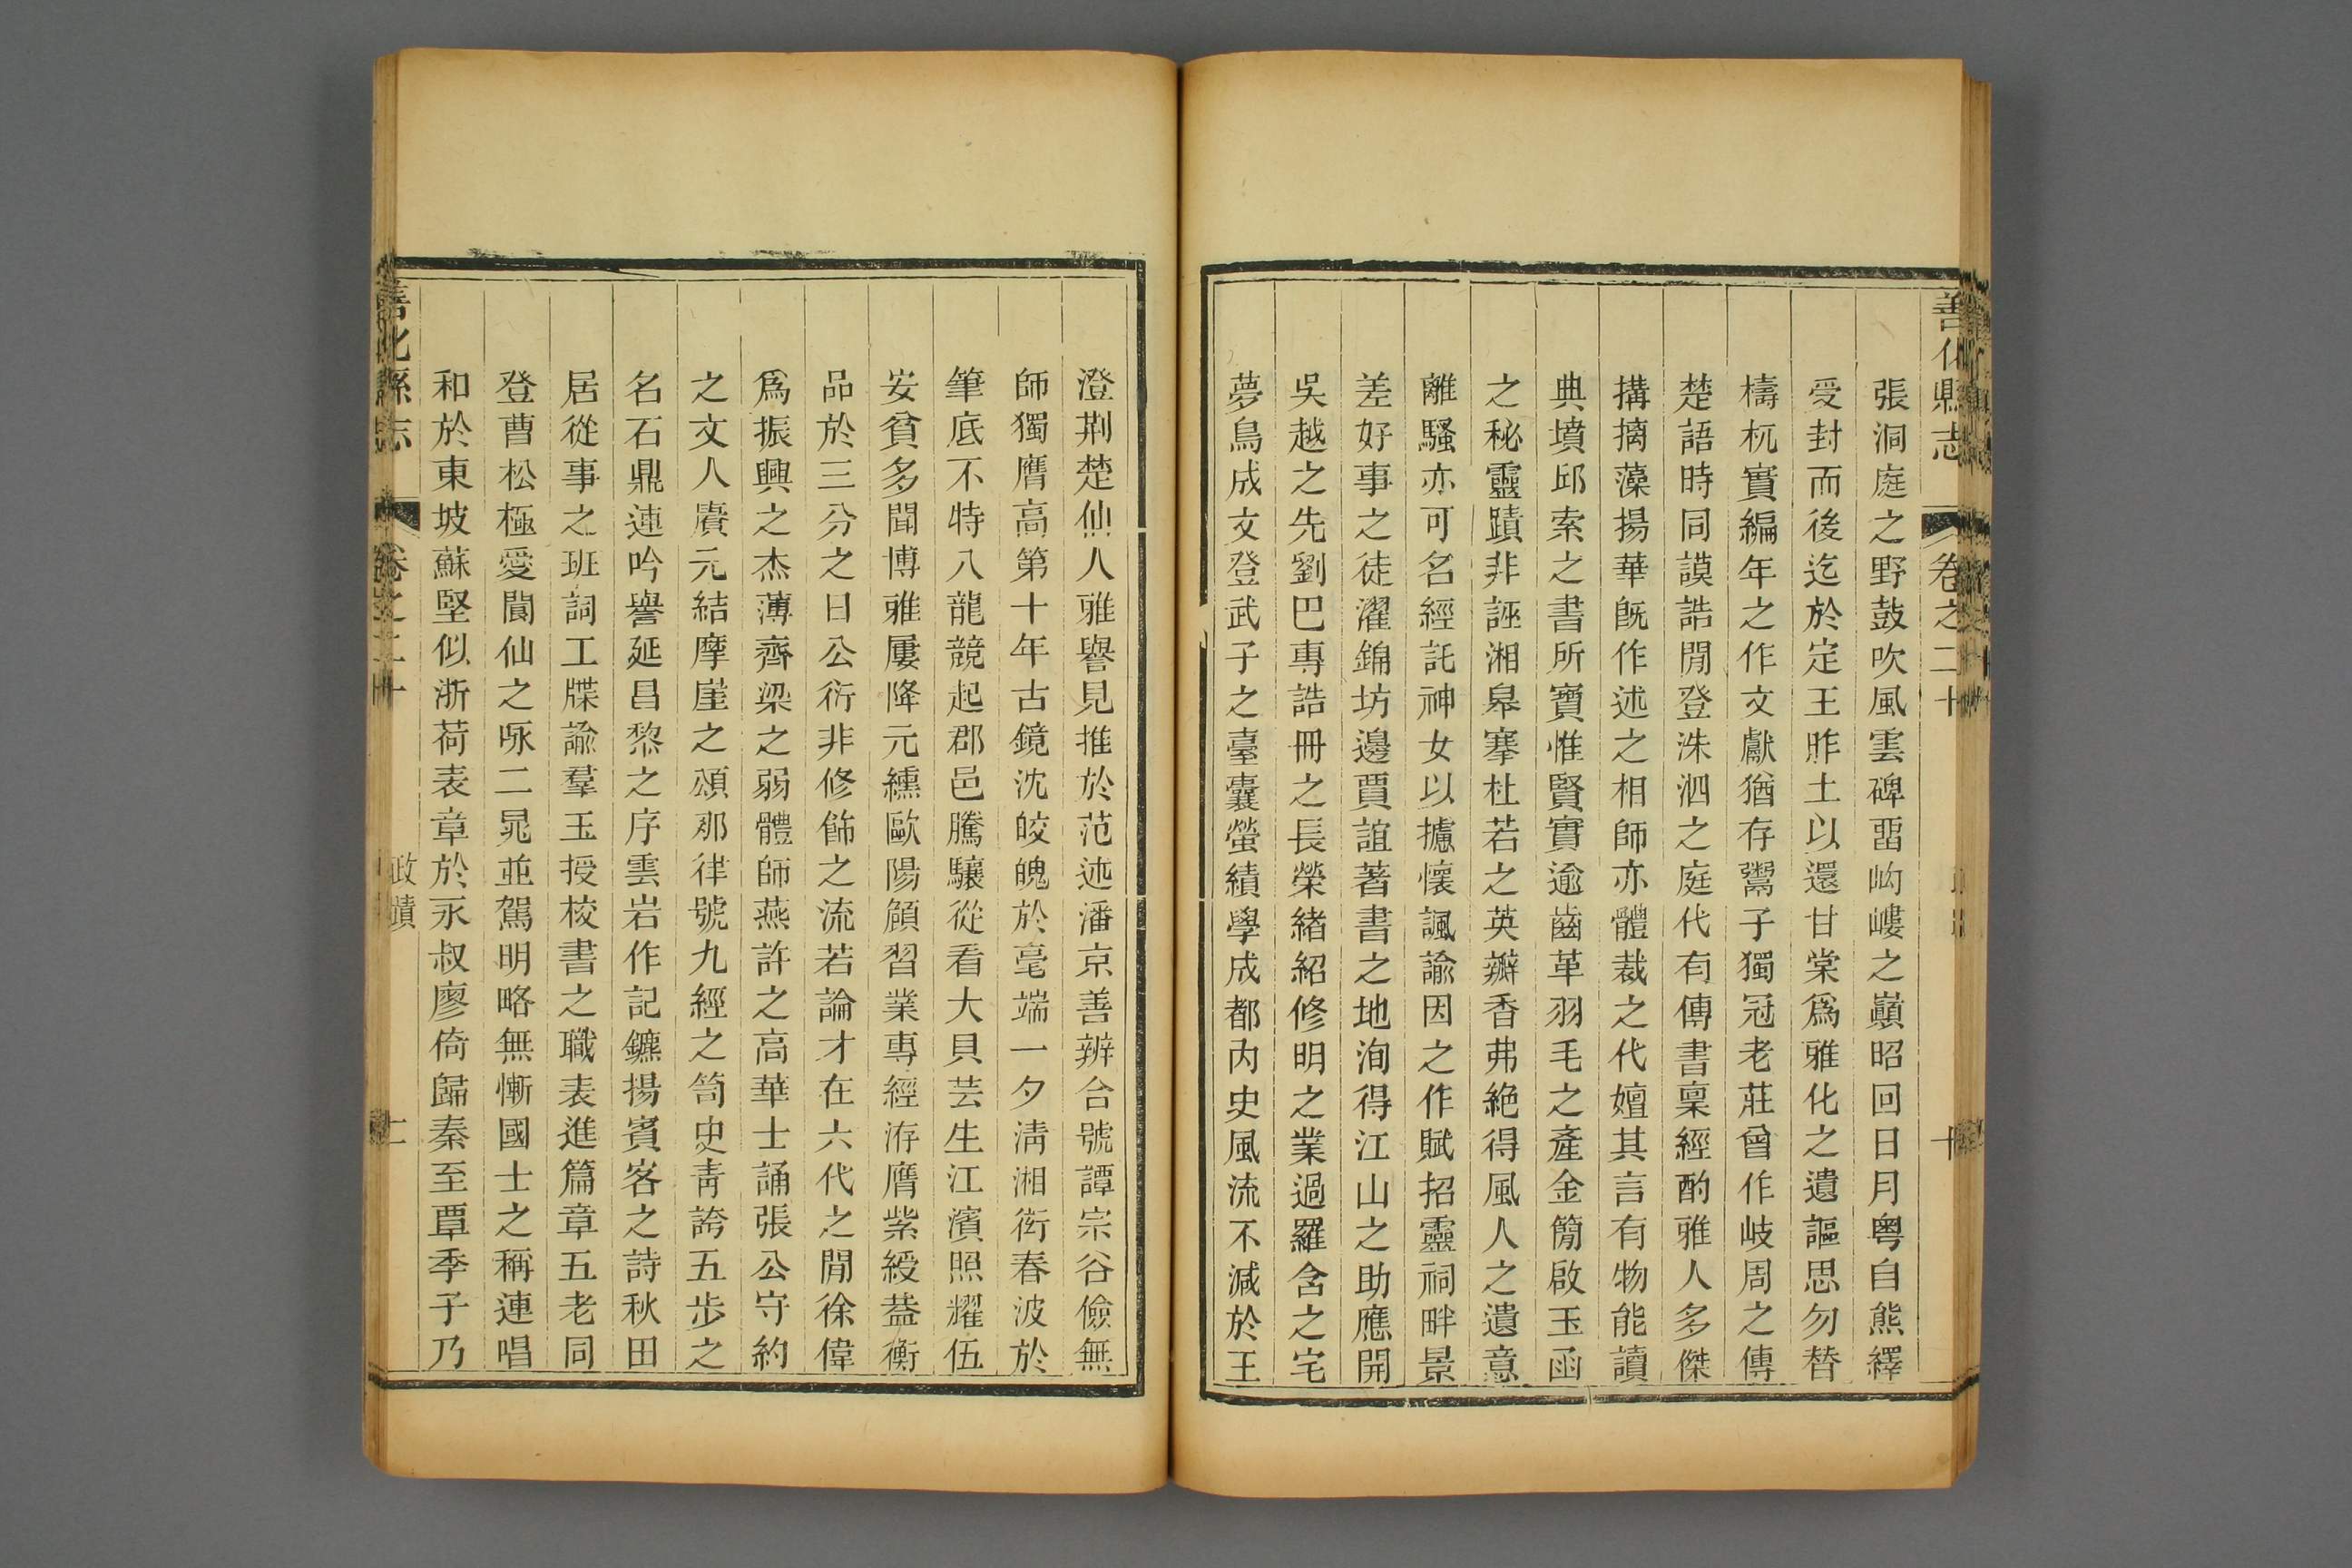 善化縣志 卷之二十
張洞庭之野鼓吹風雲碑畱岣嶁之巔昭回日月粤自熊繹
受封而後迄於定王胙土以還甘棠爲雅化之遺謳思勿替
檮杌實編年之作文獻猶存鬻子獨冠老莊曾作岐周之傳
楚語時同謨誥閒登洙泗之庭代有傳書稟經酌雅人多傑
搆摛藻揚華旣作述之相師亦體裁之代嬗其言有物能讀
典墳邱索之書所寶惟賢實逾齒革羽毛之產金簡啟玉函
之秘靈蹟非誣湘皋搴杜若之英瓣香弗絶得風人之遺意
離騷亦可名經託神女以攄懷諷諭因之作賦招靈祠畔景
差好事之徒濯錦坊邊賈誼著書之地洵得江山之助應開
吳越之先劉巴專誥冊之長榮緒紹修明之業過羅含之宅
夢鳥成文登武子之臺囊螢績學成都內史風流不減於王
澄荆楚仙人雅譽見推於范述潘京善辨合號譚宗谷儉無
師獨膺高第十年古鏡沈皎魄於毫端一夕淸湘衒春波於
筆底不特八龍競起郡邑騰驤從看大貝芸生江濱照耀伍
安貧多聞博雅屢降元纁歐陽頠習業專經洊膺紫綬葢衡
品於三分之日公衍非修飾之流若論才在六代之閒徐偉
爲振興之杰薄齊梁之弱體師燕許之高華士誦張公守約
之文人賡元結摩崖之頌那律號九經之笥史靑誇五步之
名石鼎連吟譽延昌黎之序雲岩作記鑣揚賓客之詩秋田
居從事之班詞工牒諭羣玉授校書之職表進篇章五老同
登曹松極愛閬仙之咏二晁並駕明略無慚國士之稱連唱
和於東坡蘇堅似浙荷表章於永叔廖倚歸秦至覃季子乃
善化縣志 卷之二十 政蹟